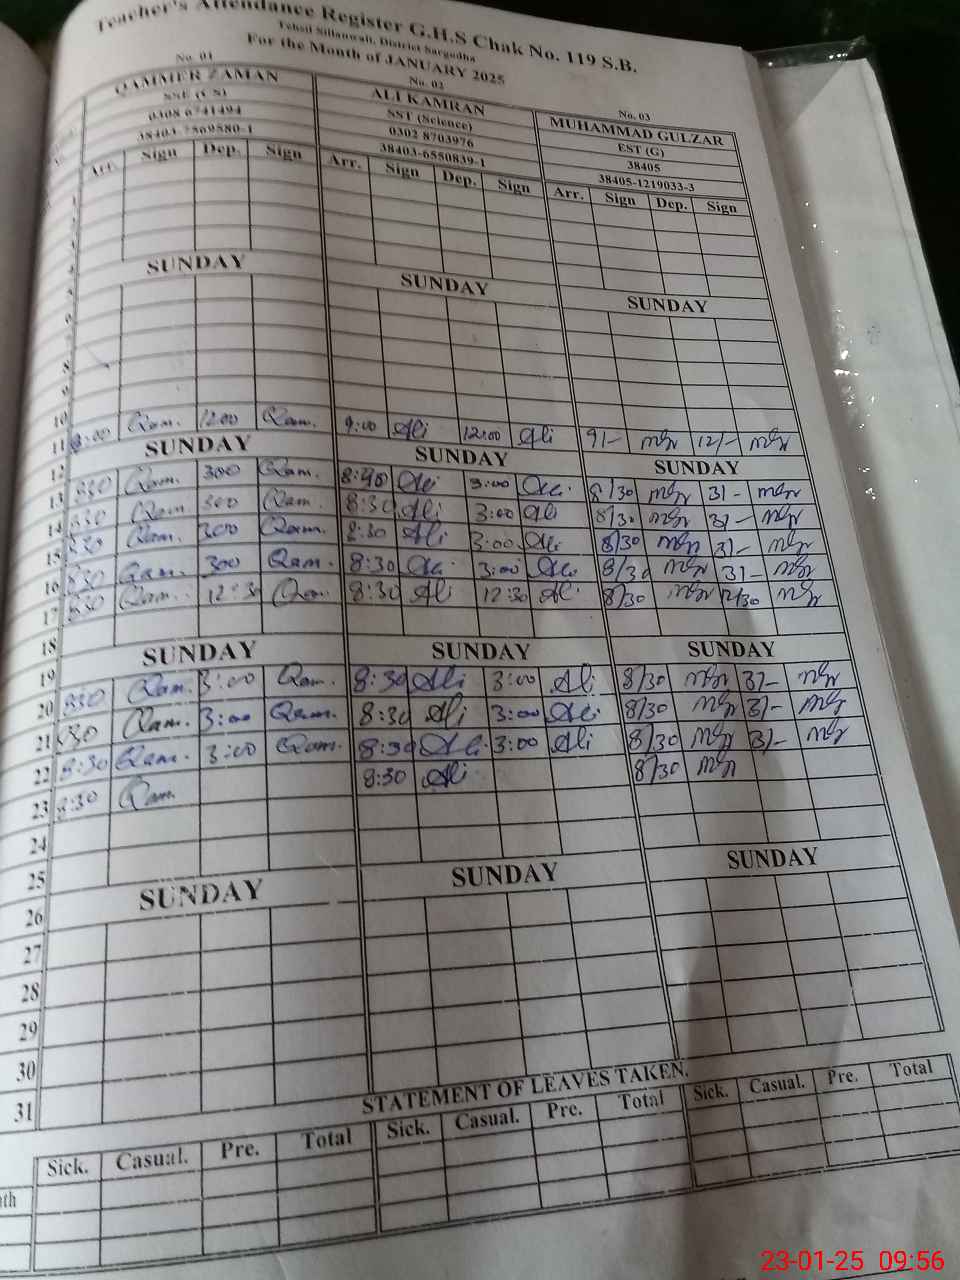 Teacher's Attendance Register G.H.S Chak No. 119 S.B.
Tehsil Sillanwali, District Sargodha
For the Month of JANUARY 2025
No. 01 No. 02 No. 03
QAMMER ZAMAN ALI KAMRAN MUHAMMAD GULZAR
SSE (CS) SST (Science) EST (G)
0308 6741494 0302 8703976 38405
38403-7569580-1 38403-6550839-1 38405-1219033-3
Arr. Sign Dep. Sign Arr. Sign Dep. Sign Arr. Sign Dep. Sign
1
2
3
4
5 SUNDAY SUNDAY SUNDAY
6
7
8
9
10
11 9:00 Qam. 1200 Qam. 9:00 Ali 12:00 Ali 9/- 12/-
12 SUNDAY SUNDAY SUNDAY
13 830 Qam. 300 Qam. Ali 3:00 Ali 8/30 3/-
14 830 Qam. 300 Qam. 8:30 Ali 3:00 Ali 8/30 3/-
15 830 Qam. 300 Qam. 8:30 Ali 3:00 Ali 8/30 3/-
16 830 Qam. 300 Qam. 8:30 Ali 3:00 Ali 8/30 3/-
17 830 Qam. 12:30 Qam 8:30 Ali 12:30 Ali 8/30 12/30
18
19 SUNDAY SUNDAY SUNDAY
20 830 Qam. 3:00 Qam. 8:30 Ali 3:00 Ali 8/30 3/-
21 830 Qam. 3:00 Qam. 8:30 Ali 3:00 Ali 8/30 3/-
22 8:30 Qam. 3:00 Qam. 8:30 Ali 3:00 Ali 8/30 3/-
23 8:30 Qam 8:30 Ali 8/30
24
25
26 SUNDAY SUNDAY SUNDAY
27
28
29
30
31
STATEMENT OF LEAVES TAKEN.
Sick. Casual. Pre. Total Sick. Casual. Pre. Total Sick. Casual. Pre. Total
23-01-25 09:56